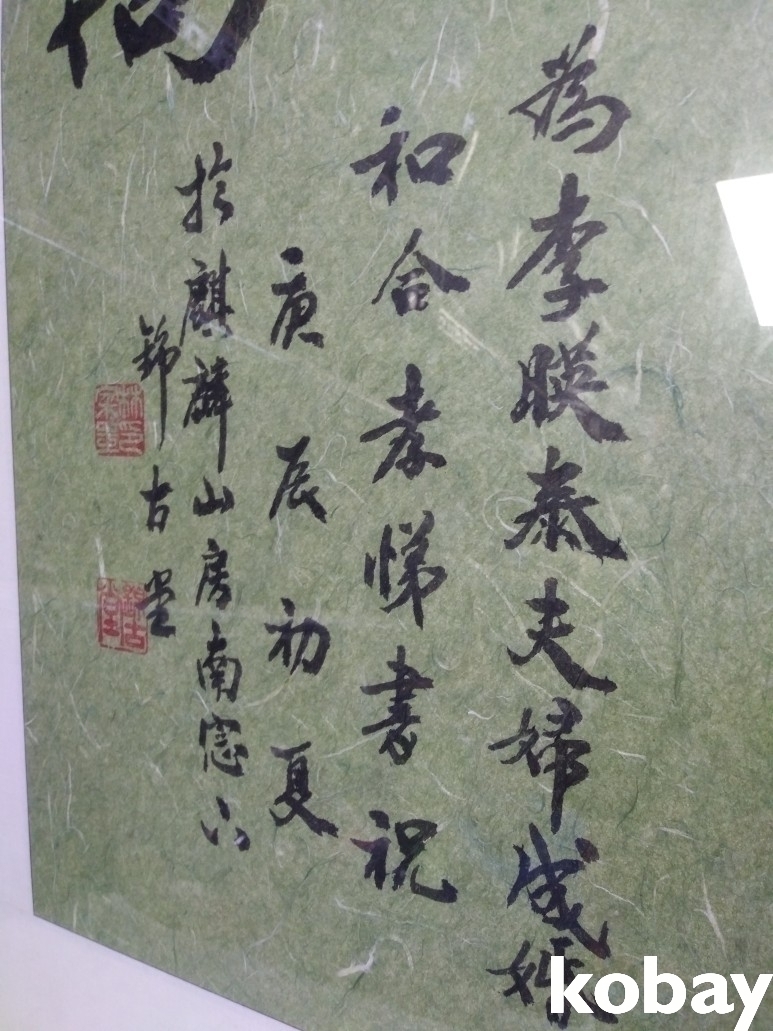 為李暎泰夫婦成婚
和合孝悌書祝
庚辰初夏
於麒麟山房南窓下
錦古堂
kobay